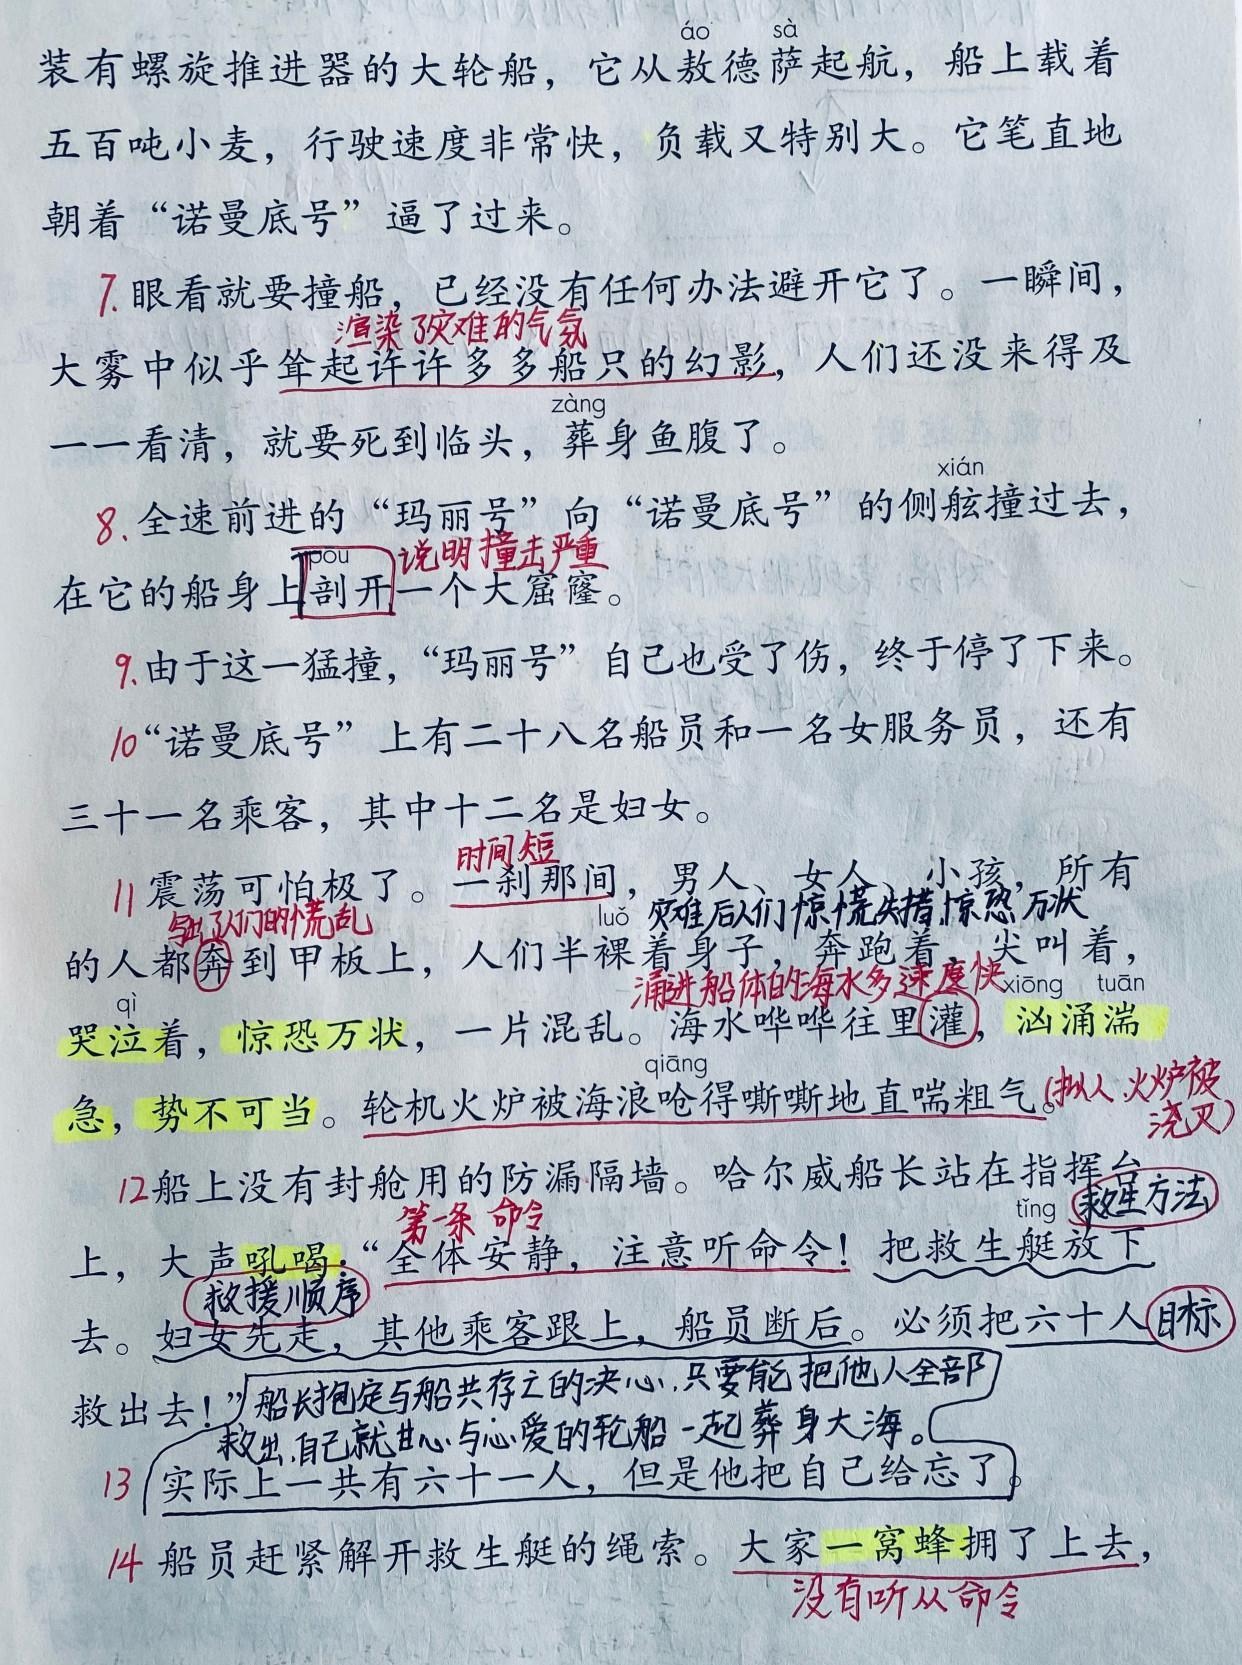 áo sà
装有螺旋推进器的大轮船，它从敖德萨起航，船上载着
五百吨小麦，行驶速度非常快，负载又特别大。它笔直地
朝着“诺曼底号”逼了过来。
7. 眼看就要撞船，已经没有任何办法避开它了。一瞬间，
渲染了灾难的气氛
大雾中似乎耸起许许多多船只的幻影，人们还没来得及
zàng
一一看清，就要死到临头，葬身鱼腹了。
xián
8. 全速前进的“玛丽号”向“诺曼底号”的侧舷撞过去，
pōu 说明撞击严重
在它的船身上剖开一个大窟窿。
9. 由于这一猛撞，“玛丽号”自己也受了伤，终于停了下来。
10 “诺曼底号”上有二十八名船员和一名女服务员，还有
三十一名乘客，其中十二名是妇女。
时间短
11 震荡可怕极了。一刹那间，男人、女人、小孩，所有
写出了人们的慌乱 luǒ 灾难后人们惊慌失措，惊恐万状
的人都奔到甲板上，人们半裸着身子，奔跑着，尖叫着，
qì 涌进船体的海水多速度快 xiōng tuān
哭泣着，惊恐万状，一片混乱。海水哗哗往里灌，汹涌湍
qiāng
急，势不可当。轮机火炉被海浪呛得嘶嘶地直喘粗气。
(拟人 火炉被
浇灭)
12 船上没有封舱用的防漏隔墙。哈尔威船长站在指挥台
第一条命令 tǐng 救生方法
上，大声吼喝：“全体安静，注意听命令！把救生艇放下
救援顺序
去。妇女先走，其他乘客跟上，船员断后。必须把六十人
目标
救出去！”
船长抱定与船共存亡的决心，只要能把他人全部
救出，自己就甘心与心爱的轮船一起葬身大海。
13 实际上一共有六十一人，但是他把自己给忘了。
14 船员赶紧解开救生艇的绳索。大家一窝蜂拥了上去，
没有听从命令